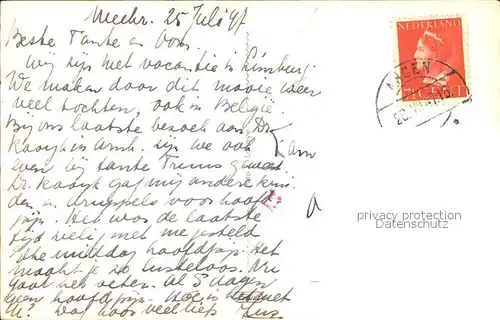 Meehr. 25 Juli '47
Beste Tante en Oom.
Wij zijn met vacantie in Limburg
We maken door dit mooie weer
veel tochten, ook in België.
Bij ons laatste bezoek aan Dr.
Kooyk in Arnh. zijn we ook
even bij tante Truus geweest.
Dr. Kooyk gaf mij andere krui
den en druppels voor hoofd
pijn. Het was de laatste
tijd met me gesteld
Elke middag hoofdpijn. Het
maakt je zo lusteloos. Nu
gaat het beter. Al 5 dagen
geen hoofdpijn. Hoe is het met
U? Dag hoor veel liefs
NEDERLAND
7½ CENT
privacy protection
Datenschutz